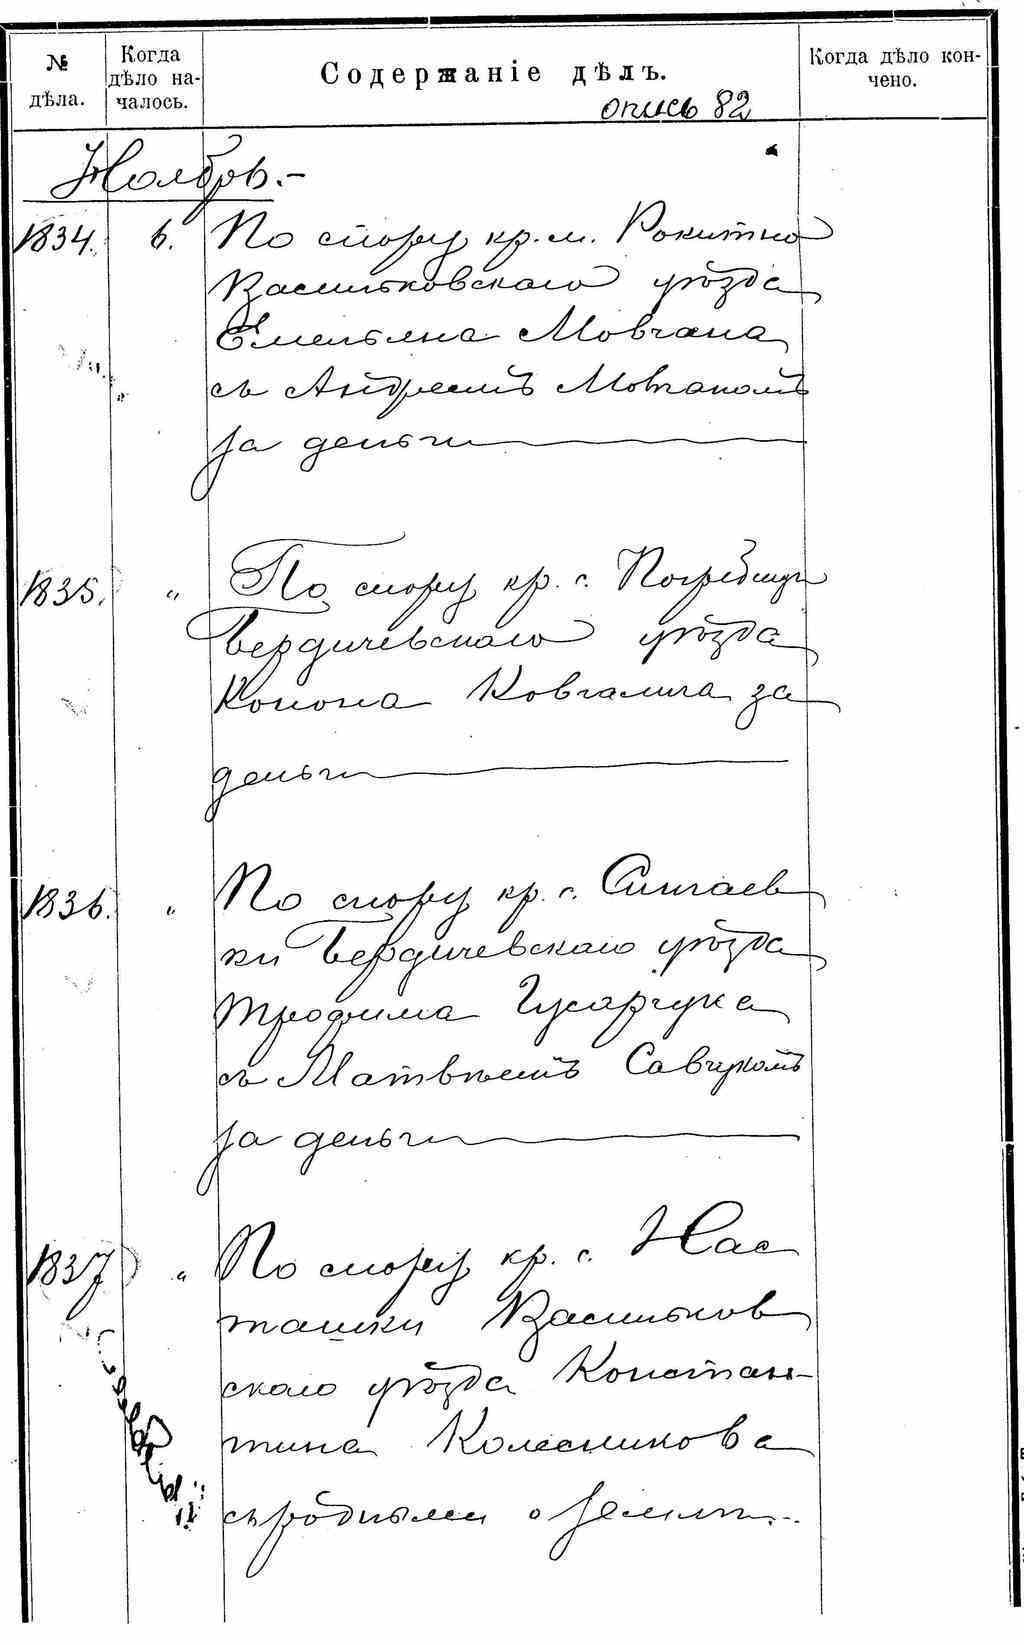 № дѣла.
Когда дѣло началось.
Содержаніе дѣлъ.
Когда дѣло кончено.
опись 82
Ноябрь.-
1834. 6. По спору кр. м. Рокитно
Васильковскаго уѣзда
Емельяна Мовчана
съ Андреемъ Мовчаномъ
за деньги
1835. " По спору кр. с. Погребищъ
Бердичевскаго уѣзда
Конона Ковгалича за
деньги
1836. " По спору кр. с. Сингаев
ки Бердичевскаго уѣзда
Трофима Гусарчука
съ Матвѣемъ Савчукомъ
за деньги
1837 " По спору кр. с. Нас
ташки Васильков
скаго уѣзда Констан-
тина Колесникова
съ родными о землѣ.-